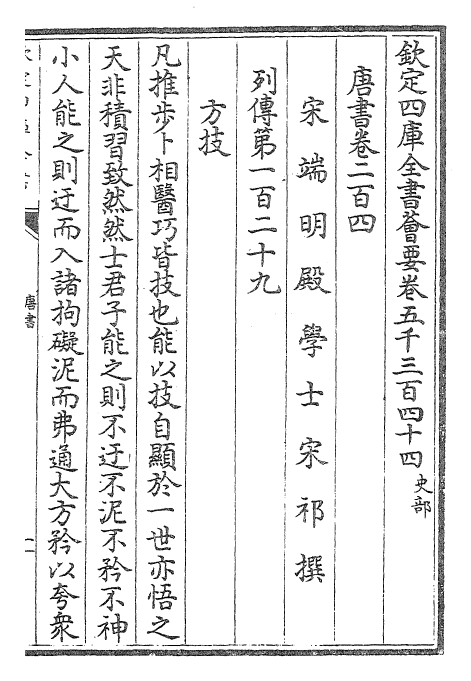 欽定四庫全書薈要卷五千三百四十四 史部
唐書卷二百四
宋端明殿學士宋祁撰
列傳第一百二十九
方技
凡推步卜相醫巧皆技也能以技自顯於一世亦悟之
天非積習致然然士君子能之則不迂不泥不矜不神
小人能之則迂而入諸拘礙泥而弗通大方矜以夸衆
唐書